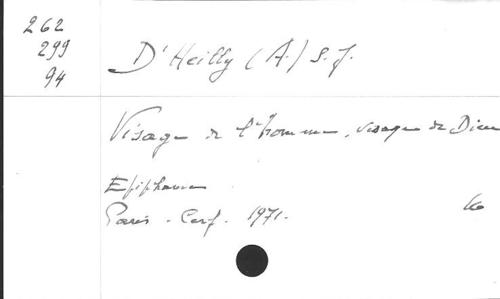 262
299
94
D'Heilly (A.) s.j.
Visage de l'homme, visage de Dieu
Epiphanie
Paris - Cerf - 1971.